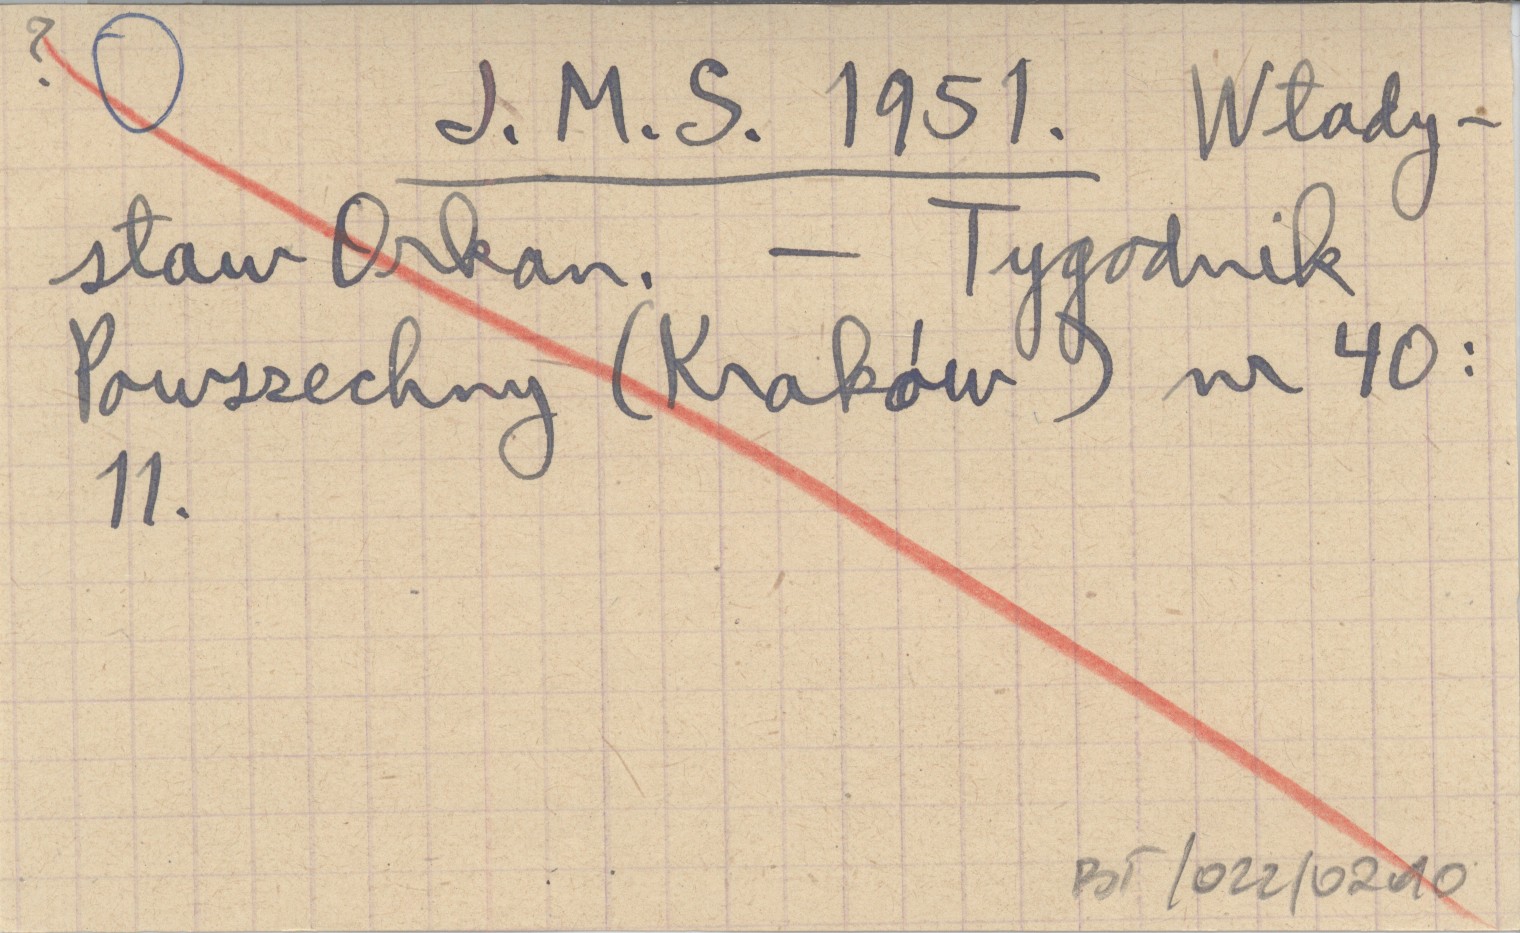 ?
J. M. S. 1951. Włady-
sław Orkan. — Tygodnik
Powszechny (Kraków) nr 40:
11.
BT/022/0210